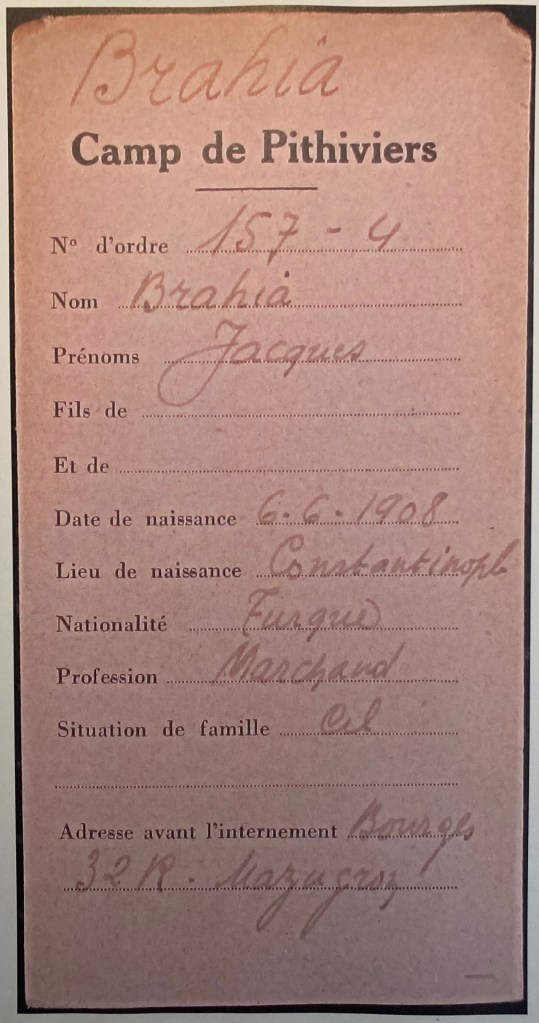 Brahia
Camp de Pithiviers
Nº d'ordre 157 - 4
Nom Brahia
Prénoms Jacques
Fils de
Et de
Date de naissance 6.6.1908
Lieu de naissance Constantinopl
Nationalité Turque
Profession Marchand
Situation de famille Cel
Adresse avant l'internement Bourges
32 R.